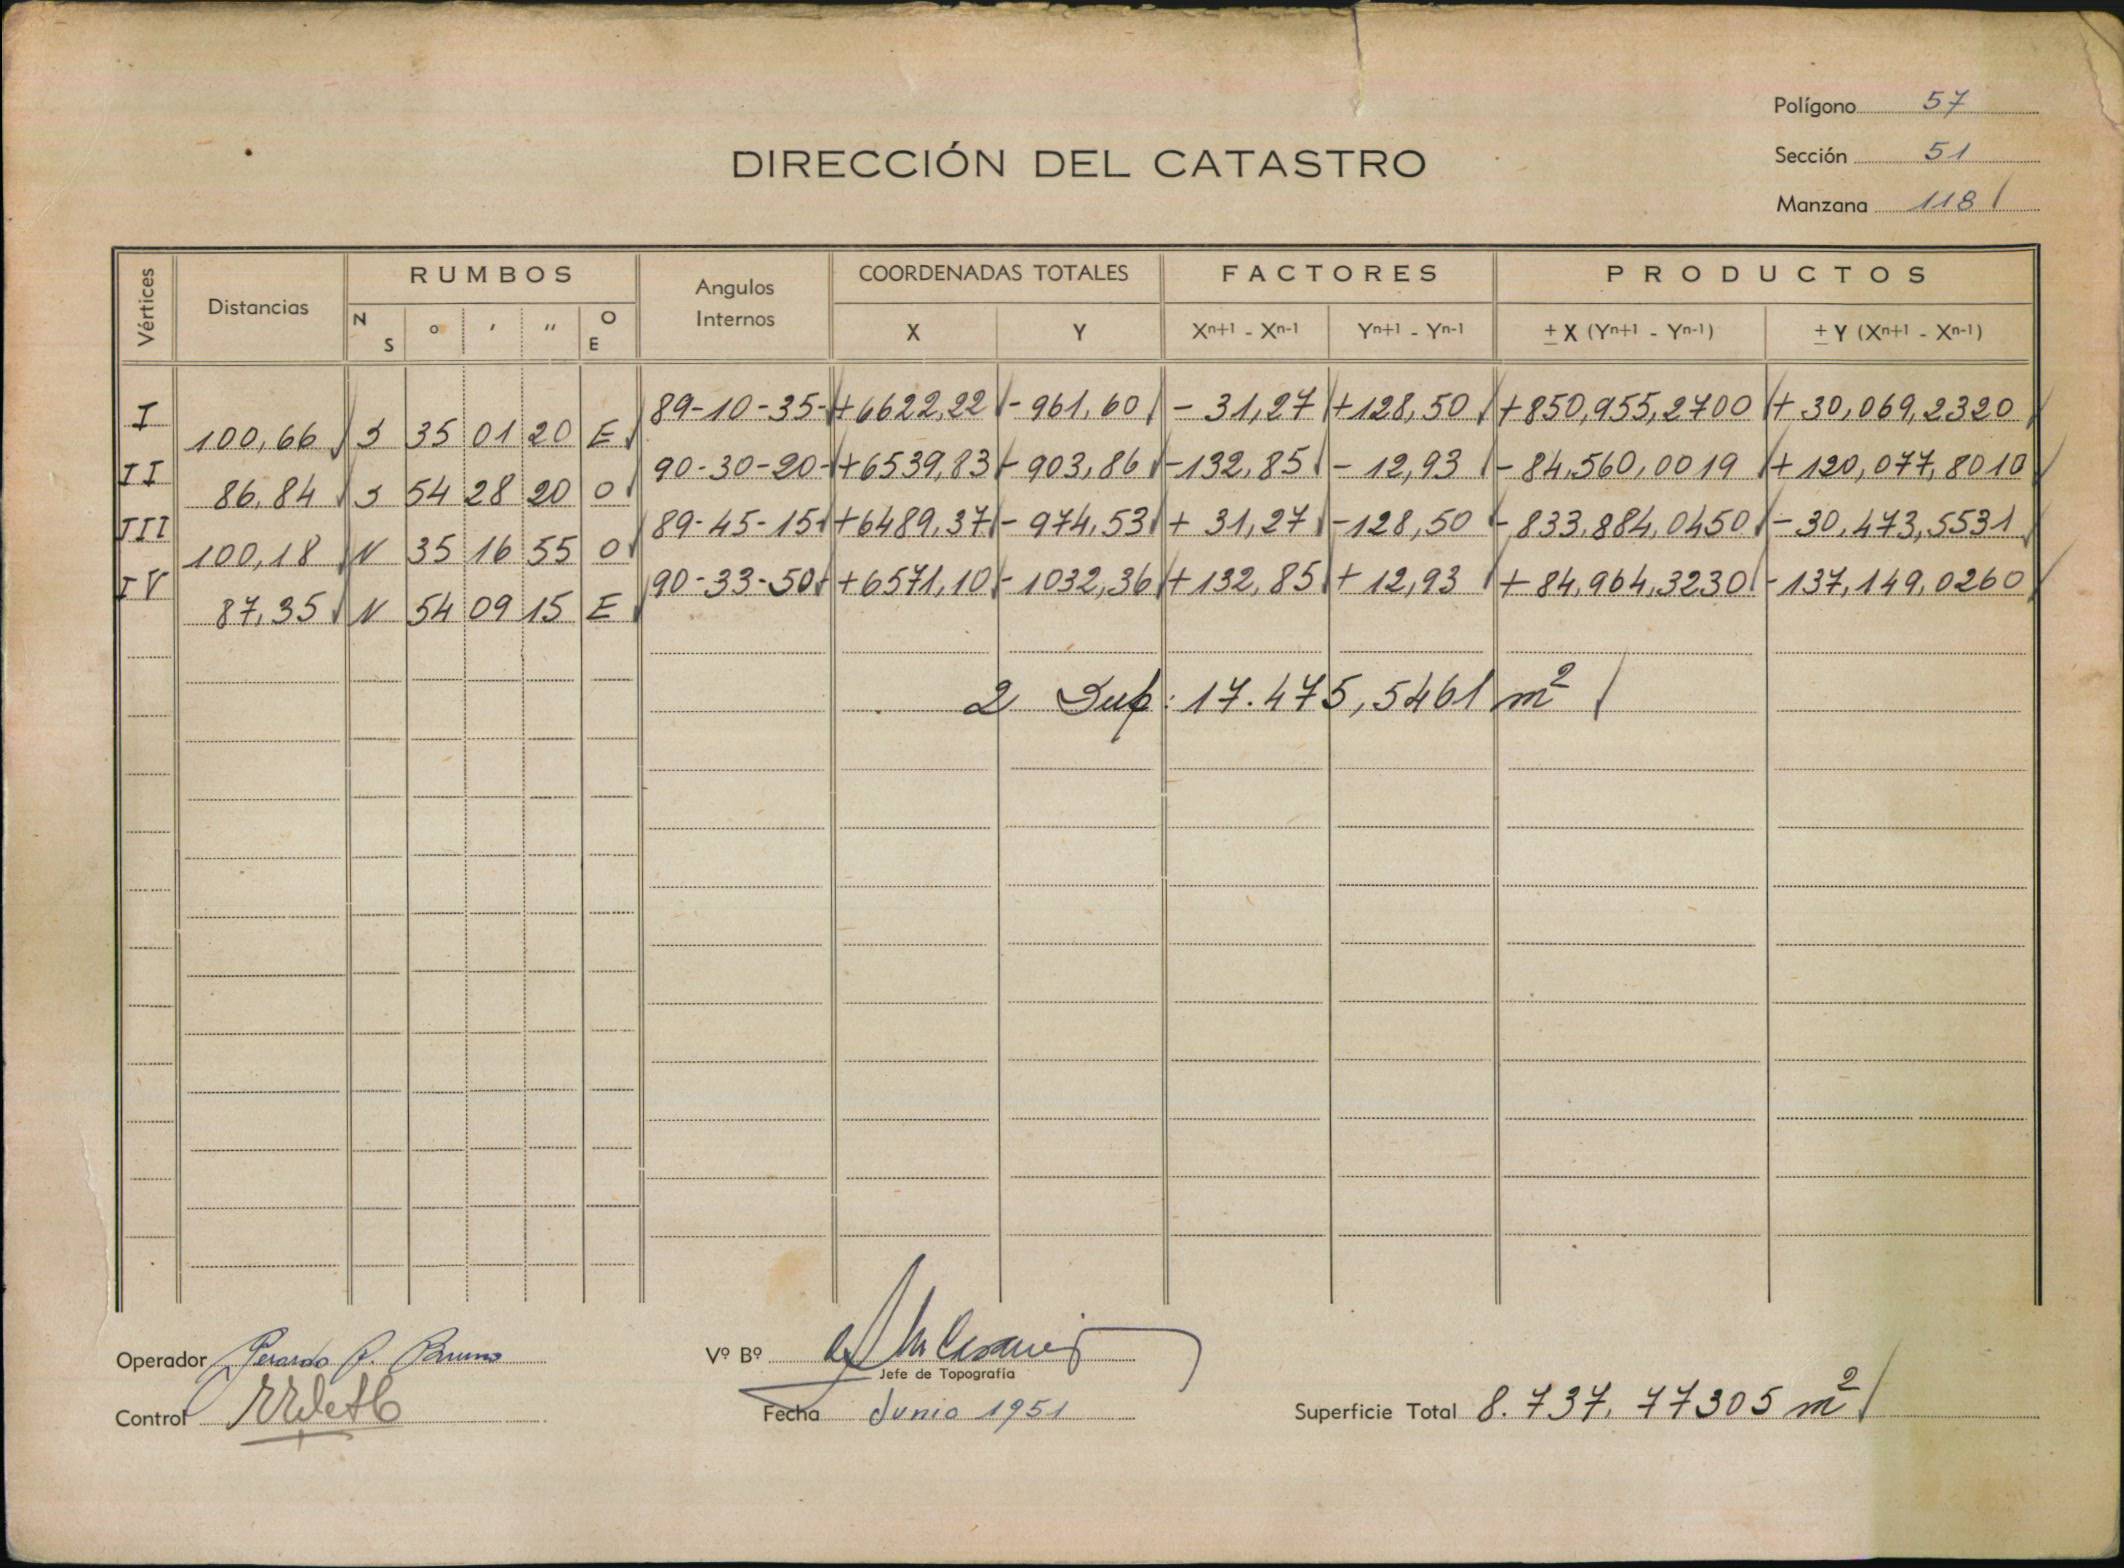 Polígono 57
DIRECCIÓN DEL CATASTRO
Sección 51
Manzana 118
Vértices Distancias RUMBOS Angulos Internos COORDENADAS TOTALES FACTORES PRODUCTOS
N S ° ' " O E X Y Xn+1 - Xn-1 Yn+1 - Yn-1 ± X (Yn+1 - Yn-1) ± Y (Xn+1 - Xn-1)
I 89-10-35 +6622,22 - 961,60 - 31,27 +128,50 +850,955,2700 + 30,069,2320
100,66 S 35 01 20 E
II 90-30-20 +6539,83 - 903,86 -132,85 - 12,93 - 84,560,0019 + 120,077,8010
86,84 S 54 28 20 O
III 89-45-15 +6489,37 - 974,53 + 31,27 -128,50 - 833,884,0450 - 30,473,5531
100,18 N 35 16 55 O
IV 90-33-50 +6571,10 - 1032,36 + 132,85 + 12,93 + 84,964,3230 - 137,149,0260
87,35 N 54 09 15 E
2 Sup: 17.475,5461 m²
Operador Gerardo R. Bruno
Vº Bº
Jefe de Topografía
Control
Fecha Junio 1951
Superficie Total 8.737,77305 m²